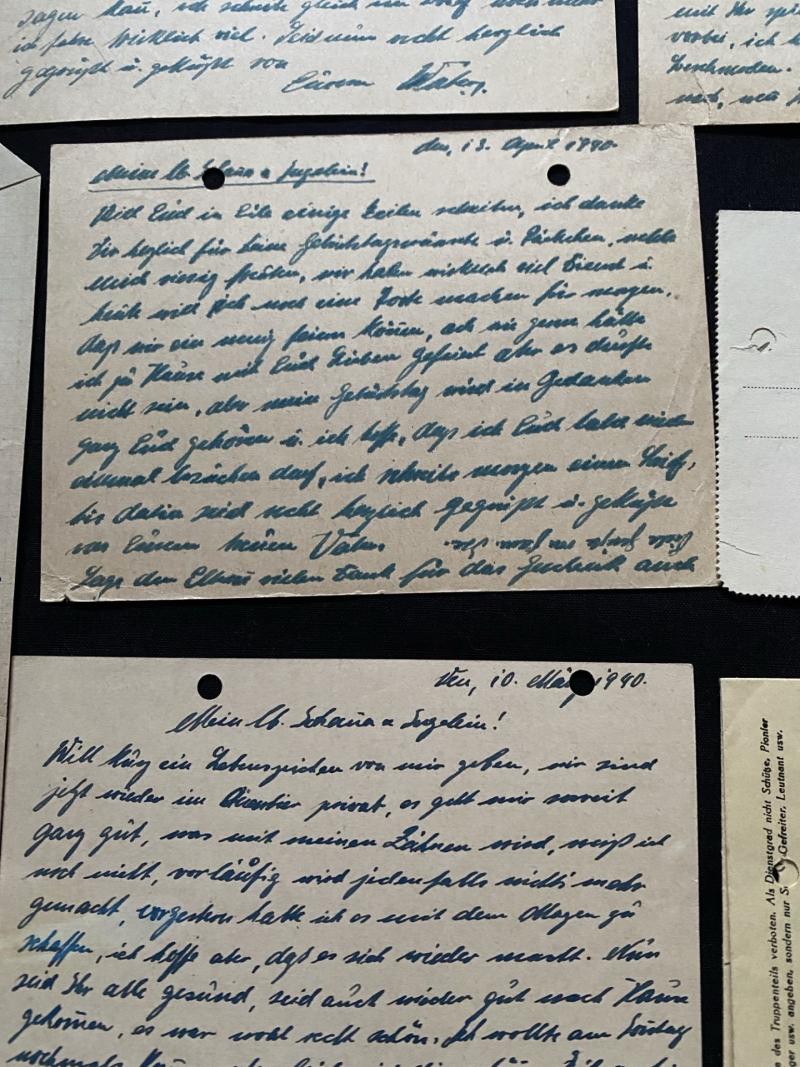 sagen kann, ich schreibe gleich
ich fahre wirklich viel. Seid nun recht herzlich
gegrüßt u. geküßt von
Eurem Vater.
mit Ihr
vorbei, ich
Beschwerden.
den, 13. April 1940.
Meine lb. Schana u Ingelein!
Will Euch in Eile einige Zeilen schreiben, ich danke
Dir herzlich für Deine Geburtstagswünsche u. Päckchen, welche
mich riesig freuten, wir haben wirklich viel Dienst u.
heute will ich noch eine Torte machen für morgen,
daß wir ein wenig feiern können, ach wie gerne hätte
ich zu Hause mit Euch Lieben gefeiert aber es durfte
nicht sein, aber mein Geburtstag wird in Gedanken
ganz Euch gehören u. ich hoffe, daß ich Euch bald wieder
einmal besuchen darf, ich schreibe morgen einen Brief,
bis dahin seid recht herzlich gegrüßt u. geküßt
von Eurem treuen Vater
Sage den Eltern vielen Dank für das Geschenk auch
Viele Grüße an
Den, 10. März 1940.
Mein lb. Schana u Ingelein!
Will kurz ein Lebenszeichen von mir geben, wir sind
jetzt wieder im Quartier privat, es geht mir soweit
ganz gut, was mit meinen Zähnen wird, weiß ich
noch nicht, vorläufig wird jedenfalls nichts mehr
gemacht, vorgestern hatte ich es mit dem Magen zu
schaffen, ich hoffe aber, daß es sich wieder macht. Nun
seid Ihr alle gesund, seid auch wieder gut nach Hause
gekommen, es war wohl recht schön, ich wollte am Sonntag
nochmals
des Truppenteils verboten. Als Dienstgrad nicht Schütze, Pionier
usw. angeben, sondern nur Gefreiter, Leutnant usw.